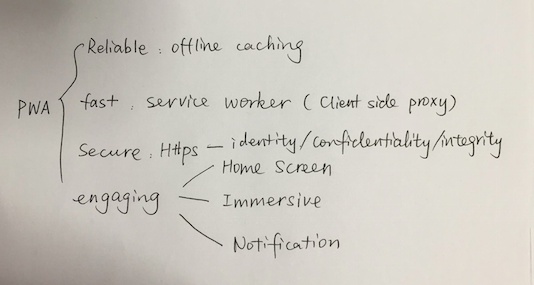 Reliable : offline caching
PWA
fast : service worker ( Client side proxy)
Secure : Https — identity/confidentiality/integrity
Home Screen
engaging
Immersive
Notification